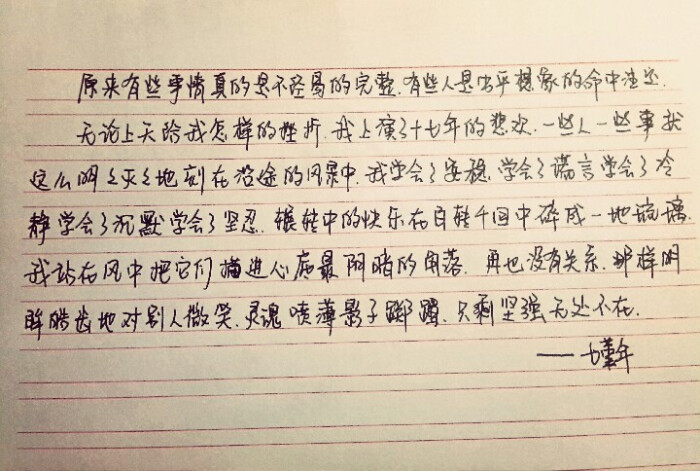 原来有些事情真的是不容易的完整.有些人是出乎想象的命中注定.
无论上天给我怎样的挫折.我上演了十七年的悲欢.一些人一些事就
这么明明灭灭地刻在沿途的风景中.我学会了安稳.学会了谎言学会了冷
静学会了沉默学会了坚忍.辗转中的快乐在百转千回中碎成一地琉璃.
我站在风中把它们扫进心底最阴暗的角落.再也没有关系.那样明
眸皓齿地对别人微笑.灵魂喷薄影子踯躅.只剩坚强无处不在.
——七堇年